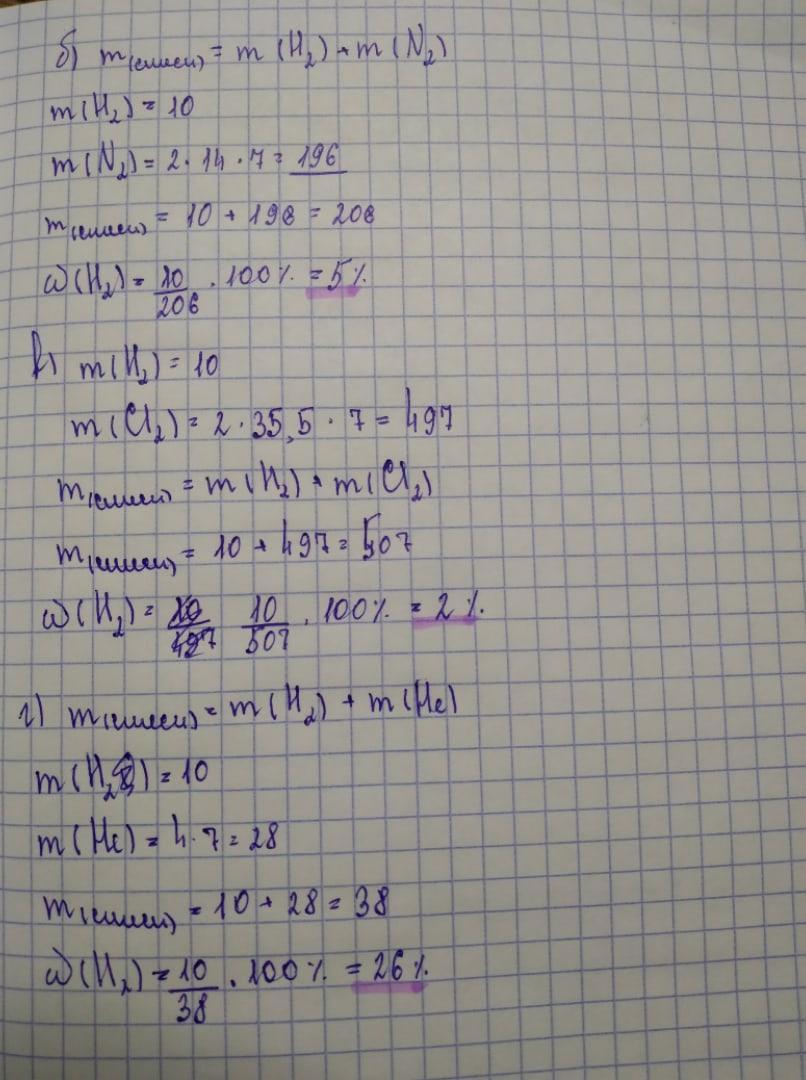 б) m(смеси) = m (H₂) + m (N₂)
m(H₂) = 10
m(N₂) = 2 · 14 · 7 = 196
m(смеси) = 10 + 198 = 208
ω(H₂) = 10/206 · 100% = 5%
в) m(H₂) = 10
m(Cl₂) = 2 · 35,5 · 7 = 497
m(смеси) = m(H₂) + m(Cl₂)
m(смеси) = 10 + 497 = 507
ω(H₂) = 10/497 10/507 · 100% = 2%
г) m(смеси) = m(H₂) + m(He)
m(H₂) = 10
m(He) = 4 · 7 = 28
m(смеси) = 10 + 28 = 38
ω(H₂) = 10/38 · 100% = 26%